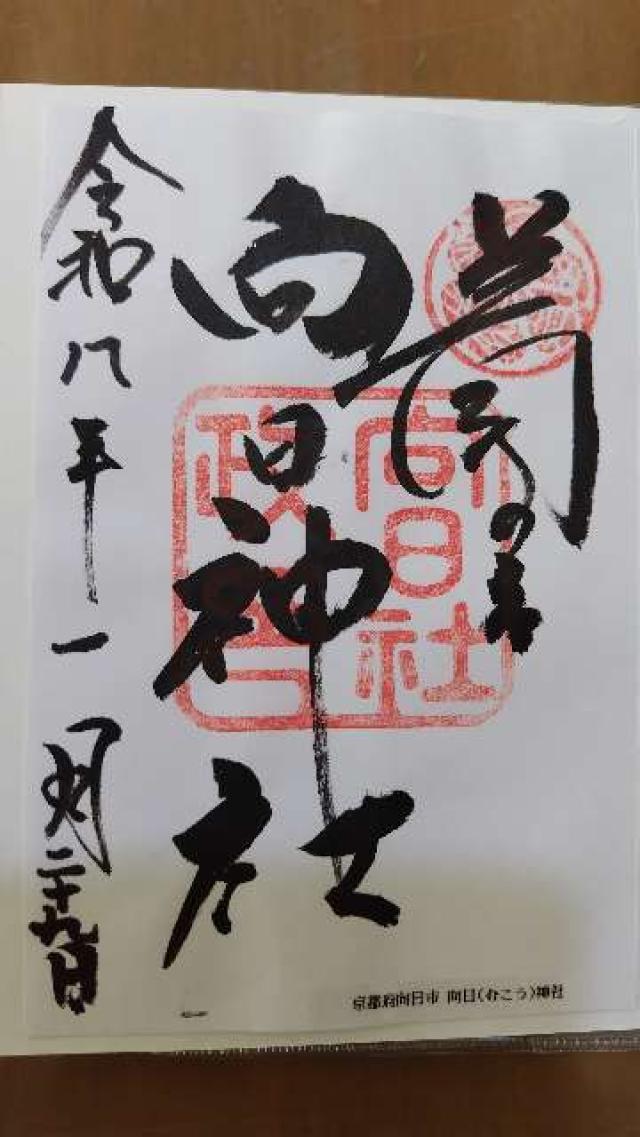 向日神社
令和八年一月二十九日
向日社
京都府向日市 向日(むこう)神社